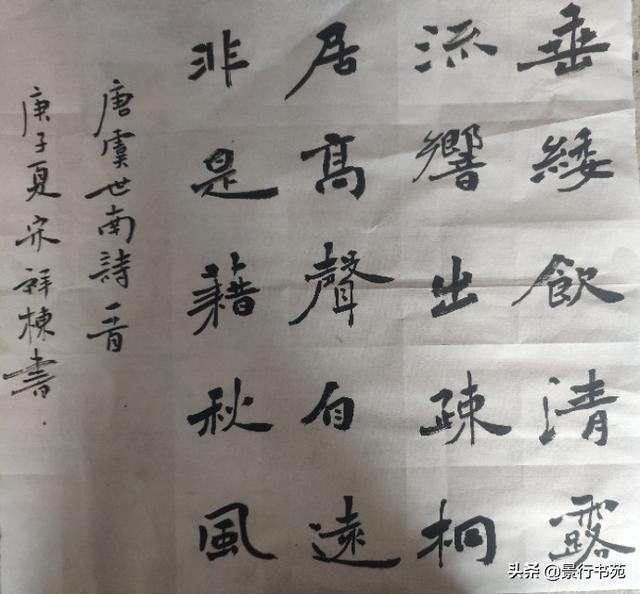 垂緌飲清露
流響出疎桐
居高聲自遠
非是藉秋風
唐虞世南詩一首
庚子夏宋祥棟書
头条@景行书苑